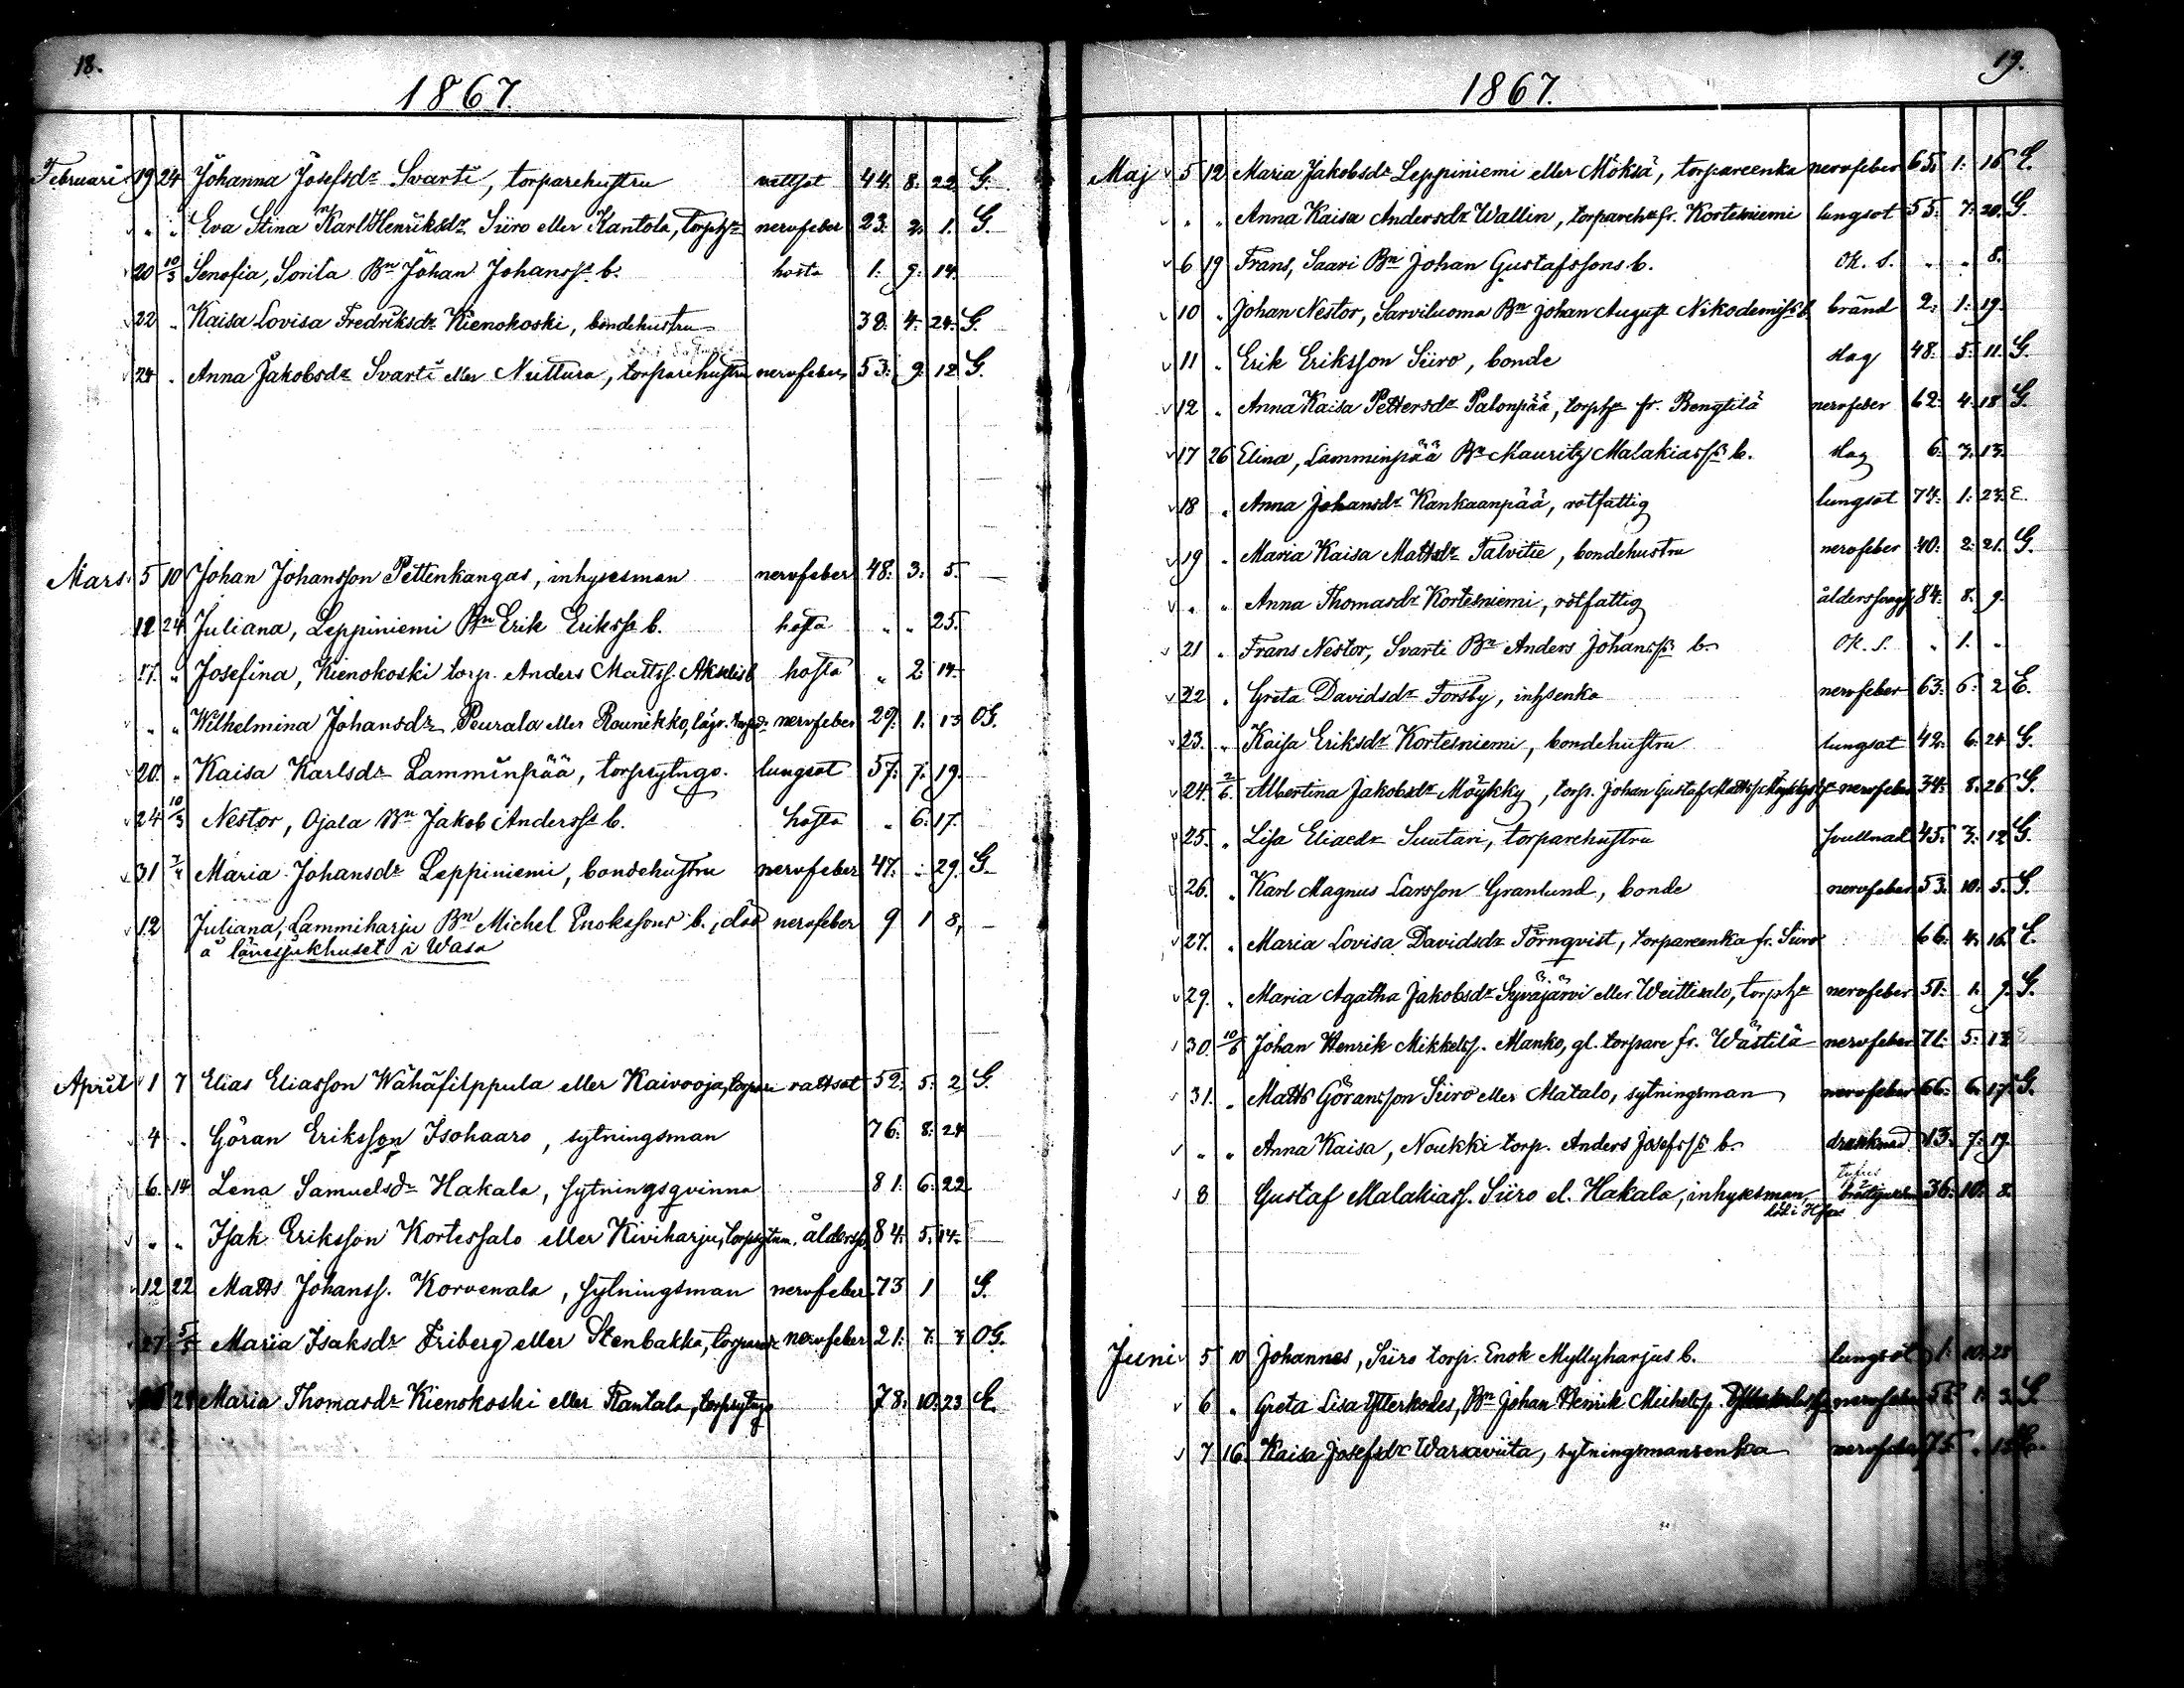 18.
1867.
Februari 19 24 Johanna Josefsdr Svarti, torparehustru vattsot 44. 8. 22. G.
" " Eva Stina KarlHenriksdr Siiro eller Kantola, torphu nervfeber 23. 2. 1. G.
20 10/3 Senofia, Sorila Bn Johan Johanss b. hosta 1. 9. 14.
22 " Kaisa Lovisa Fredriksdr Kienokoski, bondehustru 38. 4. 24. G.
24 " Anna Jakobsdr Svarti eller Nuttura, torparehustru nervfeber 53. 9. 12 G.
Mars 5 10 Johan Johansson Pettenkangas, inhysesman nervfeber 48. 3. 5. —
12 24 Juliana, Leppiniemi Bn Erik Erikss b. hosta " " 25.
17. " Josefina, Kienokoski torp. Anders Mattss. hosta " 2. 14.
" " Wilhelmina Johansdr Peurala eller Rounikko, nervfeber 29. 1. 13 OG.
20. " Kaisa Karlsdr Lamminpää, torpsytngo. lungsot 57. 7. 19.
24 10/3 Nestor, Ojala Bn Jakob Anderss b. hosta " 6. 17.
31 7/4 Maria Johansdr Leppiniemi, bondehustru nervfeber 47. " 29. G.
12 Juliana, Lammiharju Bn Michel Enokssons b., död nervfeber 9 1 8, —
å länesjukhuset i Wasa
April 1 7 Elias Eliasson Wähäfilppula eller Kaivooja, torpare vattsot 52. 5. 2. G.
4 " Göran Eriksson Isohaaro, sytningsman 76. 8. 24
6. 14 Lena Samuelsdr Hakala, sytningsqvinna 81. 6. 22
" " Isak Eriksson Kortessalo eller Kiviharju, torpsytnm. åldersv. 84. 5. 14.
12 22 Matts Johanss. Korvenala, sytningsman nervfeber 73 1 G.
27 5/5 Maria Isaksdr Friberg eller Stenbakka, nervfeber 21. 7. 7 OG.
24 Maria Thomasdr Kienokoski eller Rantala, torpsytngo 78. 10. 23 E.
19.
1867.
Maj 5 12 Maria Jakobsdr Leppiniemi eller Möksä, torpareenka nervfeber 65. 1. 16 E.
" " Anna Kaisa Andersdr Wallin, torpareh fr. Kortesniemi lungsot 55. 7. 20. G.
6 19 Frans, Saari Bn Johan Gustafssons b. Ok. S. " " 8.
10 " Johan Nestor, Sarviluoma Bn Johan August Nikodemiss b. bränd 2. 1. 19.
11 " Erik Eriksson Siiro, bonde slag 48. 5. 11. G.
12 " Anna Kaisa Pettersdr Palonpää, torph fr. Bengtilä nervfeber 62. 4. 18 G.
17 26 Elina, Lamminpää Bn Mauritz Malakiass b. slag 6. 3. 13.
18 " Anna Johansdr Kankaanpää, rotfattig lungsot 74. 1. 23. E.
19 " Maria Kaisa Mattsdr Talvitie, bondehustru nervfeber 40. 2. 21. G.
" " Anna Thomasdr Kortesniemi, rotfattig åldersvagh 84. 8. 9.
21 " Frans Nestor, Svarti Bn Anders Johanss b. Ok. S. " 1. "
22 " Greta Davidsdr Forsby, inhsenka nervfeber 63. 6. 2 E.
23. " Kaisa Eriksdr Kortesniemi, bondehustru lungsot 42. 6. 24 G.
24. 2/6 Albertina Jakobsdr Möykky, torp. Johan Gustaf nervfeber 34. 8. 26 G.
25. " Lisa Eliaedr Suutari, torparehustru svullnad 45. 3. 12 G.
26. " Karl Magnus Larsson Granlund, bonde nervfeber 53. 10. 5. G.
27. " Maria Lovisa Davidsdr Törnqvist, torpareenka fr. Siiro 66. 4. 16. E.
29. " Maria Agatha Jakobsdr Syväjärvi eller Weittiaho, torph nervfeber 51. 1. 7. G.
30 10/6 Johan Henrik Mikkelss. Manko, gl. torpare fr. Wästilä nervfeber 71. 5. 13
31. " Matts Göransson Siiro eller Matalo, sytningsman nervfeber 66. 6. 17. G.
" " Anna Kaisa, Noukki torp. Anders Josefss b. drunknad 13. 7. 19.
8 Gustaf Malakiass. Siiro el. Hakala, inhysesman, 36. 10. 8.
död i Hfors
Juni 5 10 Johannes, Siiro torp. Enok Myllyharjus b. lungsot 1. 10. 28
6 " Greta Lisa Ytterkodes, Bn Johan Henrik Michelss. nervfeber 1. 3. G.
7 16. Kaisa Josefsdr Warsaviita, sytningsmansenka nervfeber 75. "